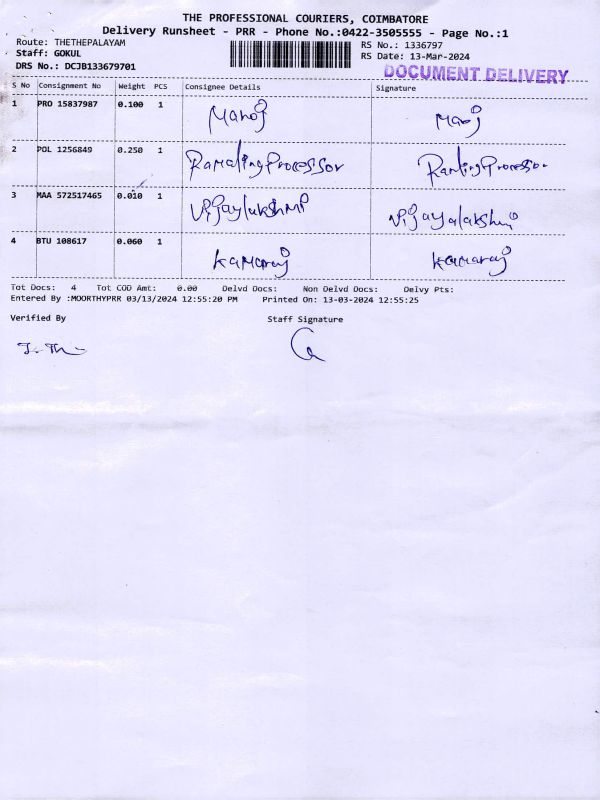 THE PROFESSIONAL COURIERS, COIMBATORE
Delivery Runsheet - PRR - Phone No.:0422-3505555 - Page No.:1
Route: THETHEPALAYAM RS No.: 1336797
Staff: GOKUL RS Date: 13-Mar-2024
DRS No.: DCJB133679701
DOCUMENT DELIVERY
S No Consignment No Weight PCS Consignee Details Signature
1 PRO 15837987 0.100 1 Manoj Manoj
2 POL 1256849 0.250 1 Processor Processor
3 MAA 572517465 0.010 1 Vijaylakshmi
4 BTU 108617 0.060 1 kamaraj kamaraj
Tot Docs: 4 Tot COD Amt: 0.00 Delvd Docs: Non Delvd Docs: Delvy Pts:
Entered By :MOORTHYPRR 03/13/2024 12:55:20 PM Printed On: 13-03-2024 12:55:25
Verified By Staff Signature